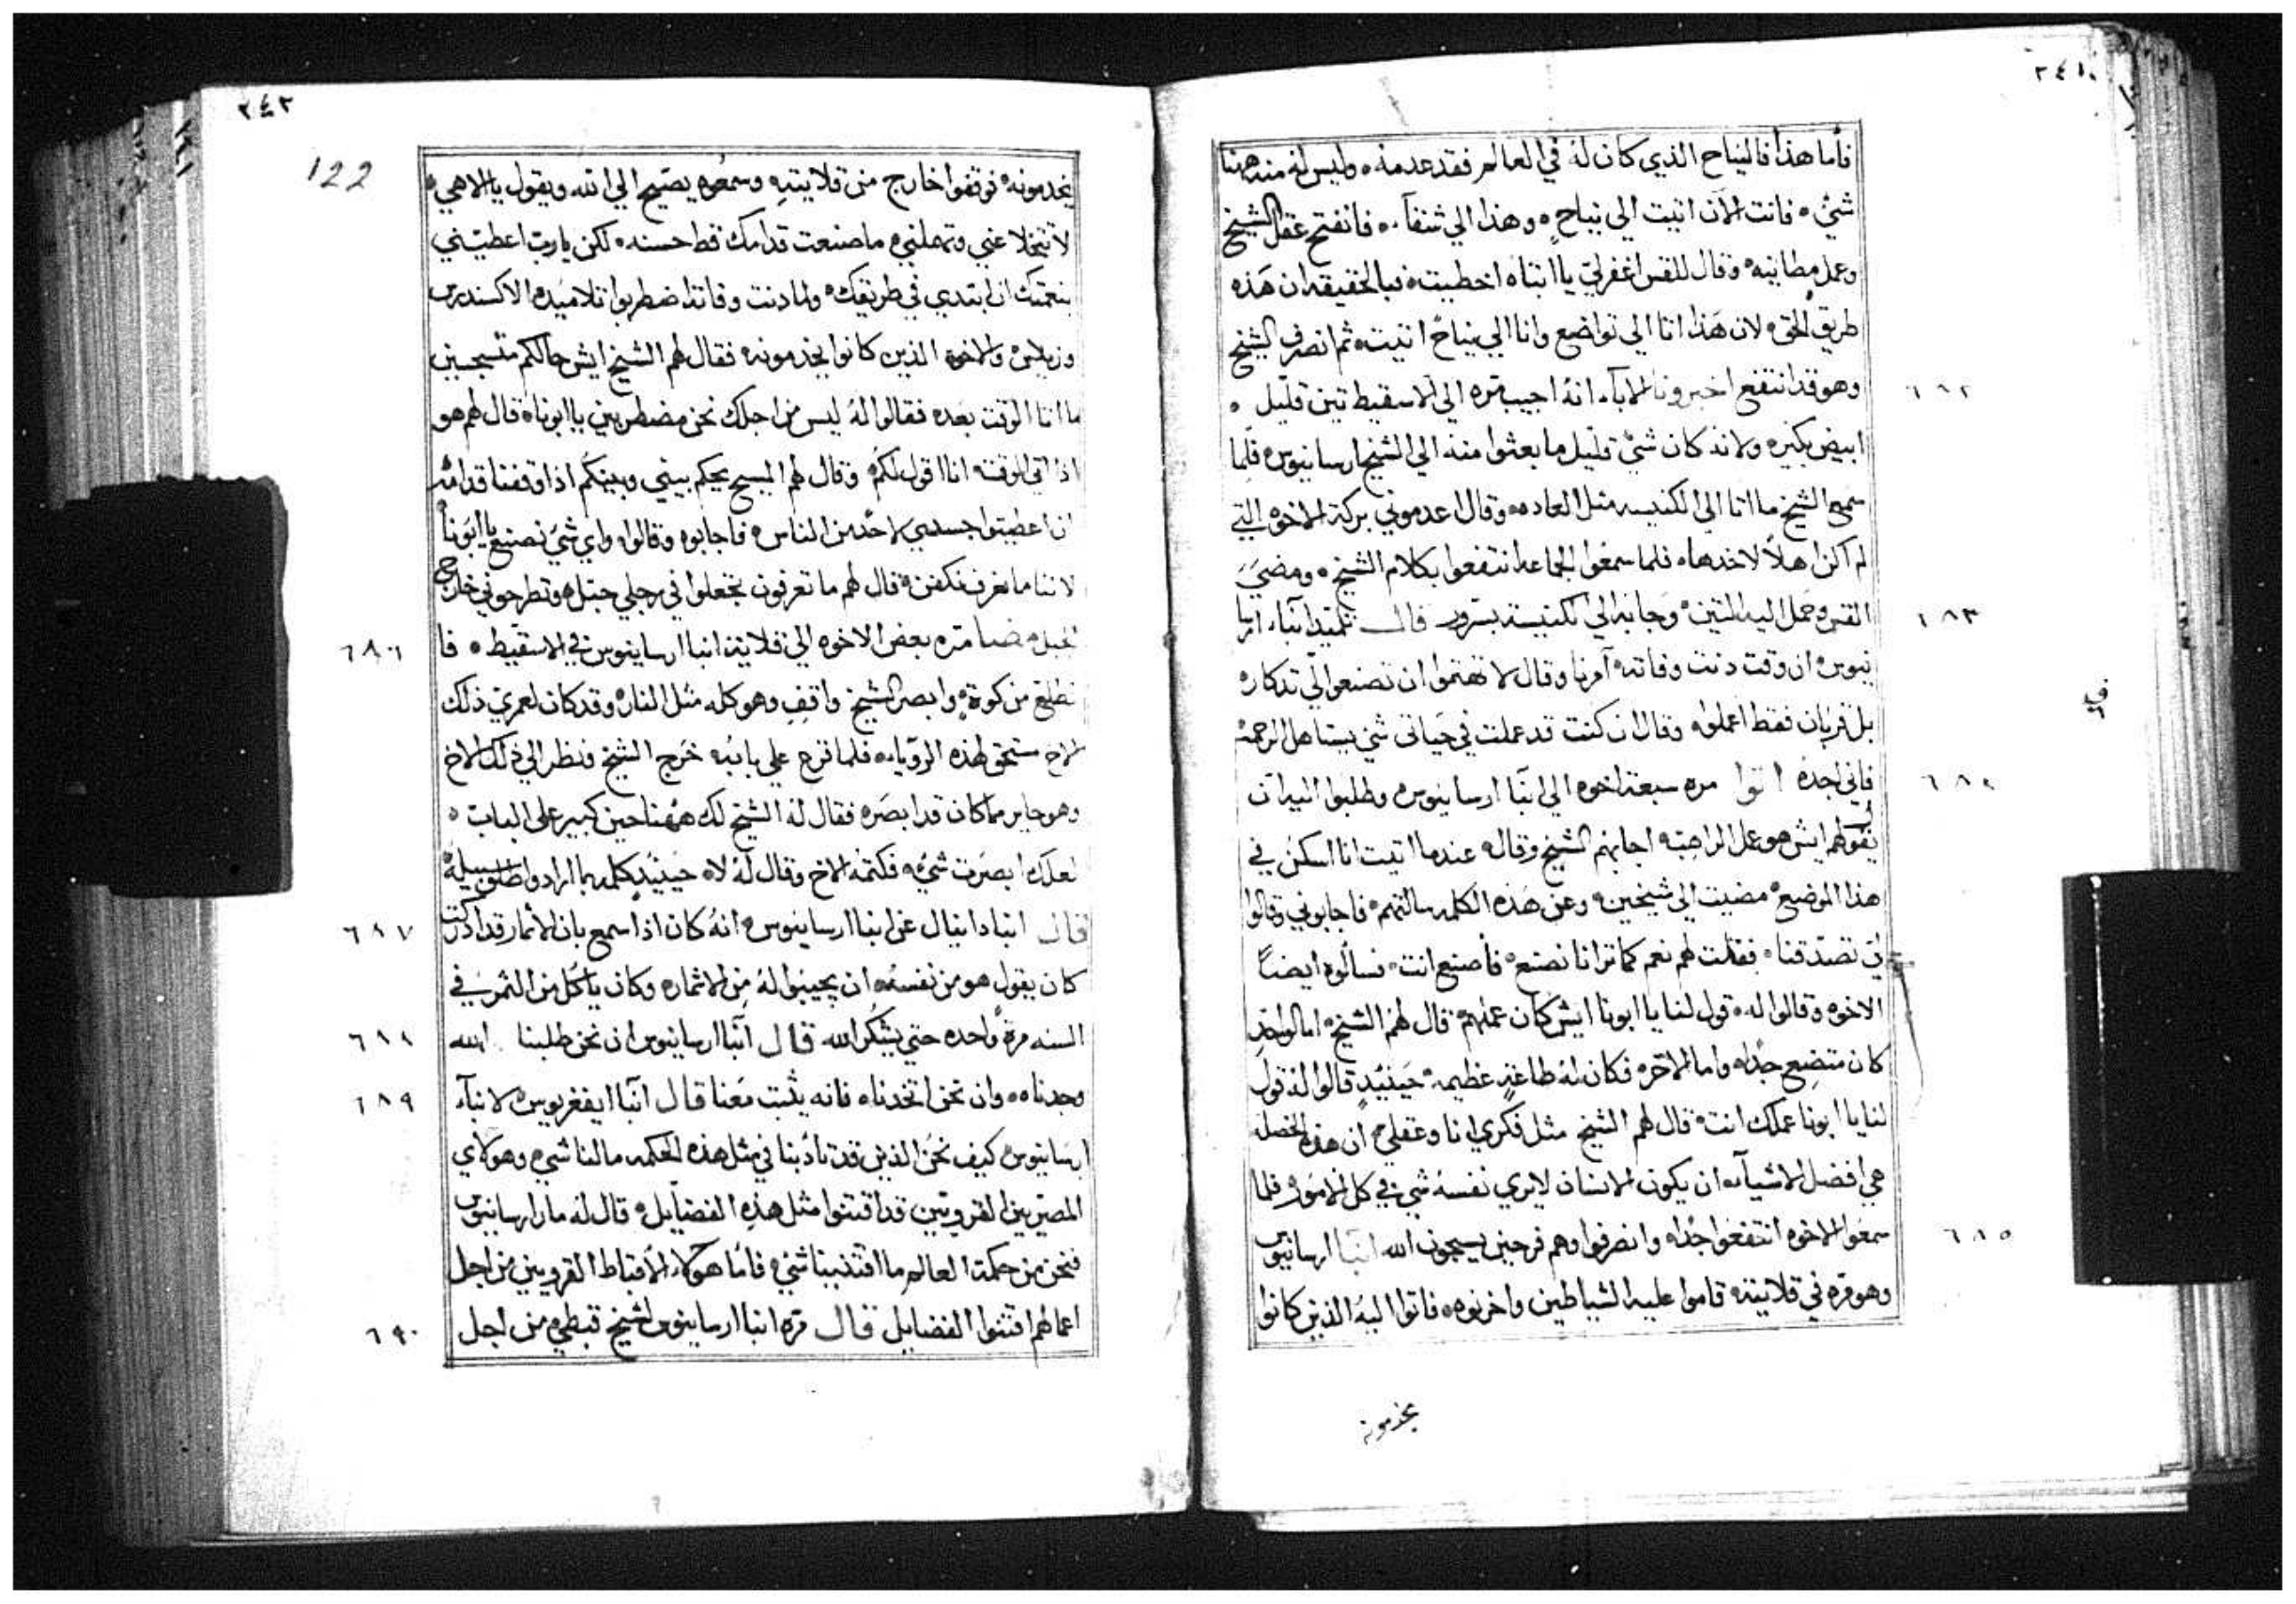 ٢٤١
فأما هذا فالنياح الذي كان له في العالم فقد عدمه وليس له منه ههنا
شي فانت الآن اتيت الي نياح وهذا الي شقآ فانفتح عقل الشيخ
وعمل مطانيه وقال للقس اغفرلي يا ابتاه اخطيت فبالحقيقه ان هذه
طريق الحق لان هذا اتا الي تواضع وانا الي نياح اتيت ثم انصرف الشيخ
٦٨٢
وهو قد انتفع اخبرونا الابآء انه اجيب مره الي الاسقيط تين قليل
ابيض بكيره ولانه كان شي قليل ما بعثوا منه الي الشيخ ارسانيوس فلما
سمع الشيخ ما اتا الي الكنيسه مثل العاده وقال اعدموني بركة الاخوه التي
لم اكن اهلاً لاخدها فلما سمعوا الجماعه انتفعوا بكلام الشيخ ومضي
٦٨٣
القس وحمل اليه التين وجا به الي الكنيسة بسرور قال تلميذ انبا ارسا
نيوس ان وقت دنت وفاته آمرنا وقال لا تهتموا ان تصنعوا لي تدكار
بل قربان فقط اعملوه وقال ان كنت قد عملت في حياتي شي يستاهل الرحمة
٦٨٤
فاني اجده اتوا مره سبعة اخوه الي انبا ارسانيوس وطلبوا اليه ان
يقول لهم ايش هو عمل الراهب اجابهم الشيخ وقال عندما اتيت انا اسكن في
هذا الموضع مضيت الي شيخين وعن هذه الكلمه سالتهم فاجابوني وقالوا
لي تصدقنا فقلت لهم نعم كما ترانا نصنع فاصنع انت فسالوه ايضاً
الاخوه وقالوا له قول لنا يا ابونا ايش كان عملهم قال لهم الشيخ اما الواحد
كان متضع جداً واما الاخر فكان له طاعة عظيمه حينيد قالوا له قول
لنا يا ابونا عملك انت قال لهم الشيخ مثل فكري انا وعقلي ان هذه الخصله
هي افضل الاشيآء ان يكون الانسان لا يري نفسه شي في كل الامور فلما
٦٨٥
سمعوا الاخوه انتفعوا جداً وانصرفوا وهم فرحين يسبحون الله انبا ارسانيوس
وهو مره في قلايته قاموا عليه الشياطين واحزنوه فاتوا اليه الذين كانوا
يخدمونه
٢٤٢
122
يخدمونه فوقفوا خارج من قلايته وسمعوه يصيح الي الله ويقول يا الاهي
لا تتخلا عني وتهملني ما صنعت قدامك قط حسنه لكن يارب اعطيني
بنعمتك ان ابتدي في طريقك ولما دنت وفاته اضطربوا تلاميده الاكسندرس
وزيلس والاخوه الذين كانوا يخدمونه فقال لهم الشيخ ايش حالكم متسجسين
ما اتا الوقت بعد فقالوا له ليس من اجلك نحن مضطربين يا ابوناه قال لهم هو
اذا اتي الوقت انا اقول لكم وقال لهم المسيح يحكم بيني وبينكم اذا وقفنا قدامه
ان اعطيتوا جسدي لاحد من الناس فاجابوه وقالوا واي شي نصنع يا ابونا
لاننا ما نعرف نكفن قال لهم ما تعرفون تجعلوا في رجلي حبل وتطرحوني خارج
٦٨٦
الجبل مضا مره بعض الاخوه الي قلاية انبا ارسانيوس في الاسقيط فا
تطلع من كوة وابصر الشيخ واقف وهو كله مثل النار وقد كان لعمري ذلك
الاخ مستحق لهذه الرؤيا فلما قرع علي بابه خرج الشيخ فنظر الي ذلك الاخ
وهو حاير مما كان قد ابصره فقال له الشيخ لك ههنا حين كبير علي الباب
لعلك ابصرت شي فكتمه الاخ وقال له لا حينيد كلمه بما اراد واطلق سبيله
٦٨٧
قال انبا دانيال عن انبا ارسانيوس انه كان اذا سمع بان الاثمار قد ادركت
كان يقول هو من نفسه ان يجيبوا له من الاثمار وكان ياكل من الثمر في
٦٨٨
السنه مرة واحده حتي يشكر الله قال انبا ارسانيوس ان نحن طلبنا الله
٦٨٩
وجدناه وان نحن اتخدناه فانه يثبت معنا قال انبا ايفغريوس لانبآ
ارسانيوس كيف نحن الذين قد تادبنا في مثل هذه الحكمه مالنا شي وهولاي
المصريين القرويين قد اقتنوا مثل هذه الفضايل قال له مار ارسانيوس
فنحن من حكمة العالم ما اقتنينا شي فاما هولاء الاقباط القرويين من اجل
٦٩٠
اعمالهم اقتنوا الفضايل قال مره انبا ارسانيوس لشيخ قبطي من اجل